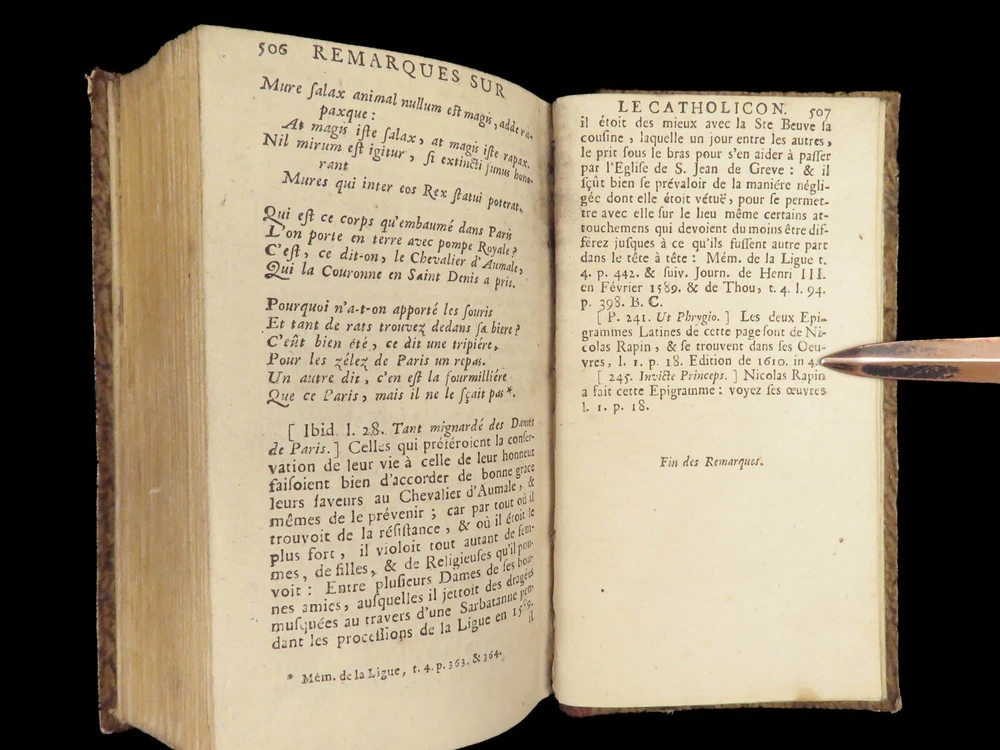 506 REMARQUES SUR
Mure ſalax animal nullum eſt magis, adde ra-
paxque :
At magis iſte ſalax, at magis iſte rapax.
Nil mirum eſt igitur, ſi extincti funus hono-
rant
Mures qui inter eos Rex ſtatui poterat.
Qui eſt ce corps qu'embaumé dans Paris
L'on porte en terre avec pompe Royale ?
C'eſt, ce dit-on, le Chevalier d'Aumale,
Qui la Couronne en Saint Denis a pris.
Pourquoi n'a-t-on apporté les ſouris
Et tant de rats trouvez dedans ſa biere ?
C'eût bien été, ce dit une tripiére,
Pour les zélez de Paris un repas.
Un autre dit, c'en eſt la fourmilliére
Que ce Paris, mais il ne le ſçait pas*.
[ Ibid. l. 28. Tant mignardé des Dames
de Paris. ] Celles qui préféroient la conſer-
vation de leur vie à celle de leur honneur
faiſoient bien d'accorder de bonne grace
leurs faveurs au Chevalier d'Aumale, &
mêmes de le prévenir ; car par tout où il
trouvoit de la réſiſtance, & où il étoit le
plus fort, il violoit tout autant de fem-
mes, de filles, & de Religieuſes qu'il pou-
voit : Entre pluſieurs Dames de ſes bon-
nes amies, auſquelles il jettoit des dragées
muſquées au travers d'une Sarbatanne pen-
dant les proceſſions de la Ligue en 1589.
il
* Mém. de la Ligue, t. 4. p. 363. & 364.
LE CATHOLICON. 507
il étoit des mieux avec la Ste Beuve ſa
couſine, laquelle un jour entre les autres,
le prit ſous le bras pour s'en aider à paſſer
par l'Egliſe de S. Jean de Greve : & il
ſçût bien ſe prévaloir de la maniére négli-
gée dont elle étoit vétuë, pour ſe permet-
tre avec elle ſur le lieu même certains at-
touchemens qui devoient du moins être dif-
férez juſques à ce qu'ils fuſſent autre part
dans le tête à tête : Mém. de la Ligue t.
4. p. 442. & ſuiv. Journ. de Henri III.
en Février 1589. & de Thou, t. 4. l. 94.
p. 398. B. C.
[ P. 241. Ut Phrygio. ] Les deux Epi-
grammes Latines de cette page ſont de Ni-
colas Rapin, & ſe trouvent dans ſes Oeu-
vres, l. 1. p. 18. Edition de 1610. in 4.
[ 245. Invicte Princeps. ] Nicolas Rapin
a fait cette Epigramme : voyez ſes œuvres
l. 1. p. 18.
Fin des Remarques.